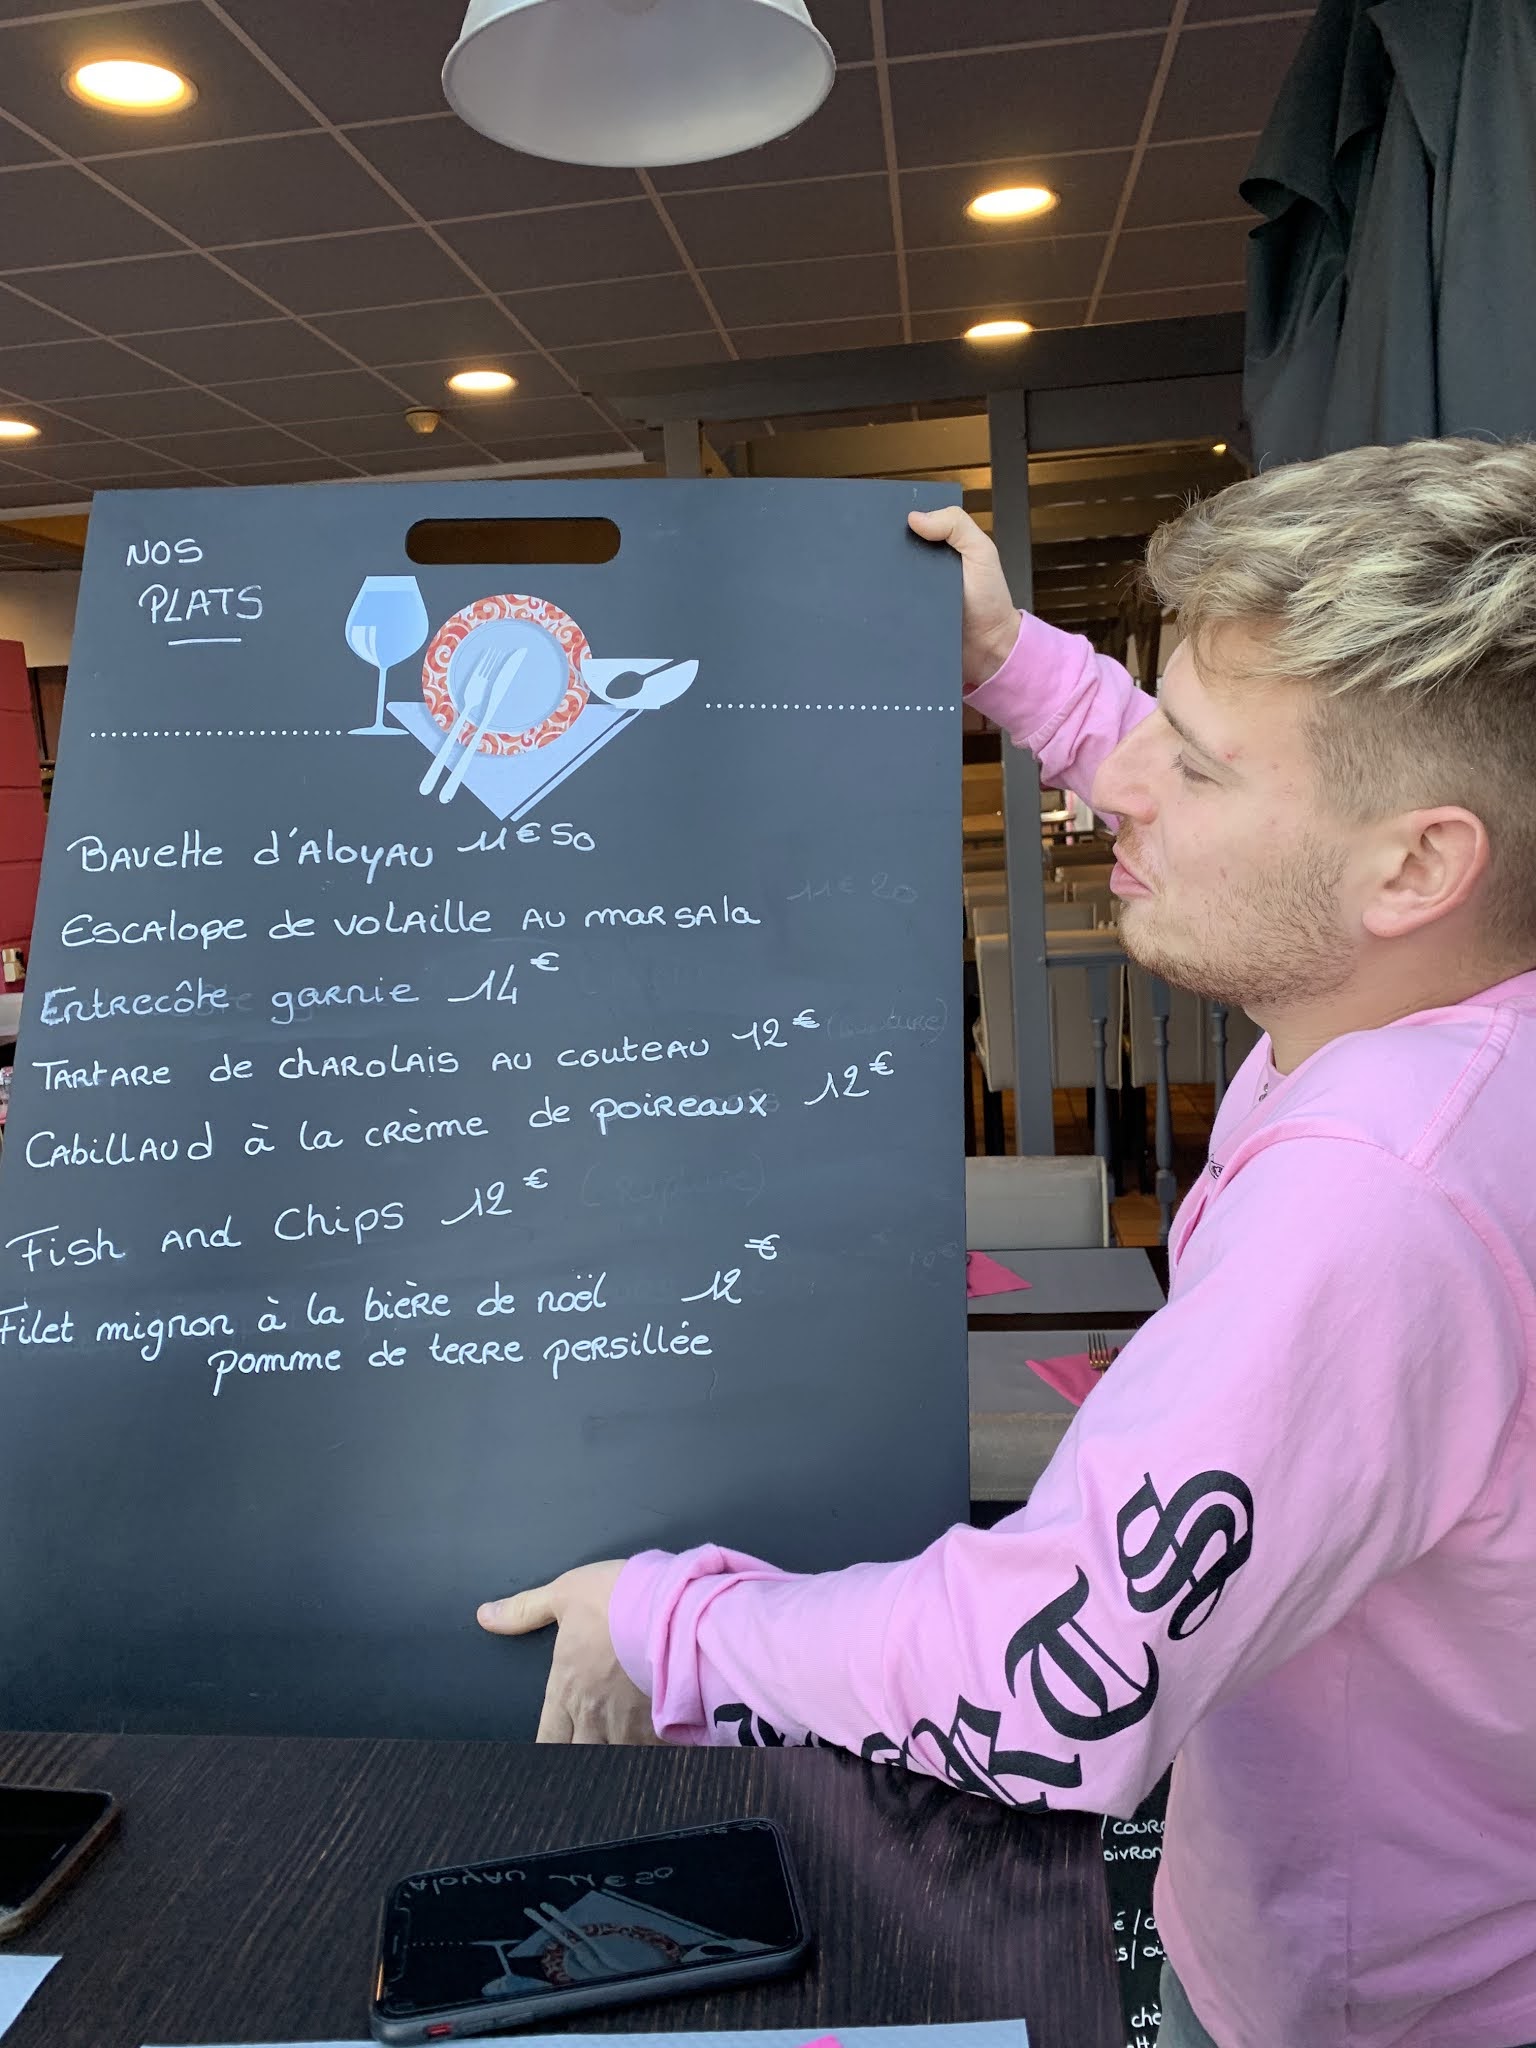 NOS
PLATS
Bavette d'Aloyau 11€50
Escalope de volaille au marsala 11€20
Entrecôte garnie 14€
Tartare de charolais au couteau 12€
Cabillaud à la crème de poireaux 12€
Fish and Chips 12€ (rupture)
Filet mignon à la bière de noël 12€
pomme de terre persillée